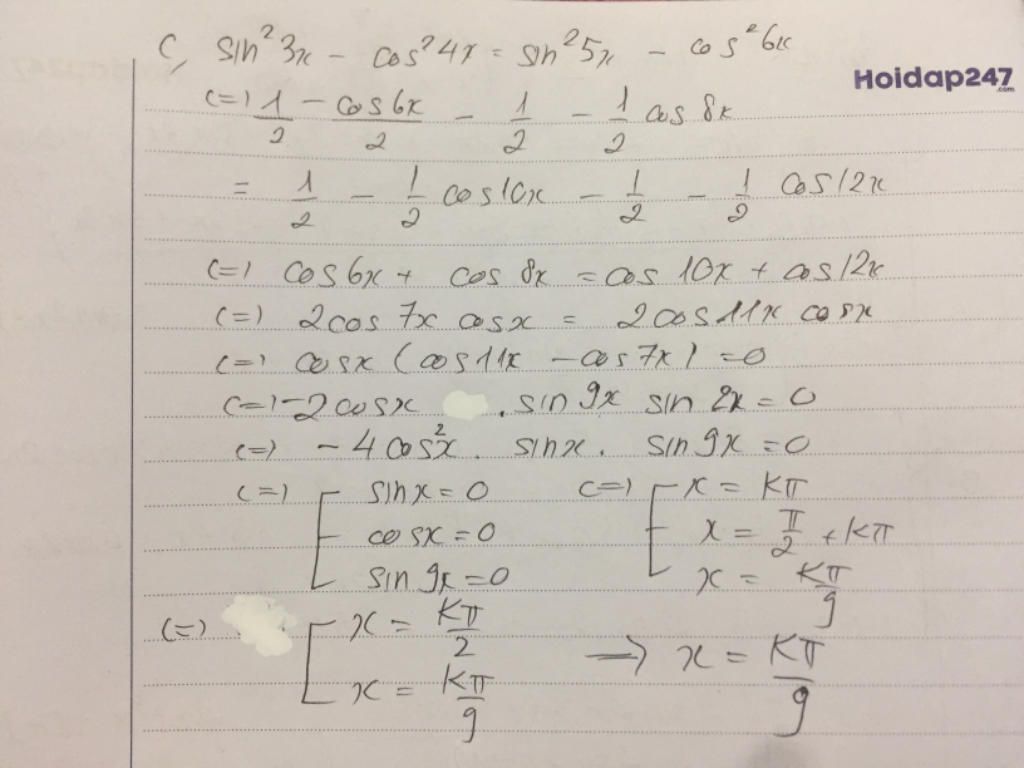 c, sin²3x - cos²4x = sin²5x - cos²6x
Hoidap247
.com
(=) 1/2 - cos6x/2 - 1/2 - 1/2 cos 8x
= 1/2 - 1/2 cos10x - 1/2 - 1/2 cos12x
(=) cos6x + cos 8x = cos 10x + cos12x
(=) 2cos 7x cosx = 2cos11x cosx
(=) cosx (cos11x - cos7x) = 0
(=) -2cosx . sin 9x sin 2x = 0
(=) -4cos²x . sinx . sin 9x = 0
(=) [ sinx = 0 (=) [ x = kπ
cosx = 0 x = π/2 + kπ
sin 9x = 0 x = kπ/9
(=) [ x = kπ/2
x = kπ/9 → x = kπ/9